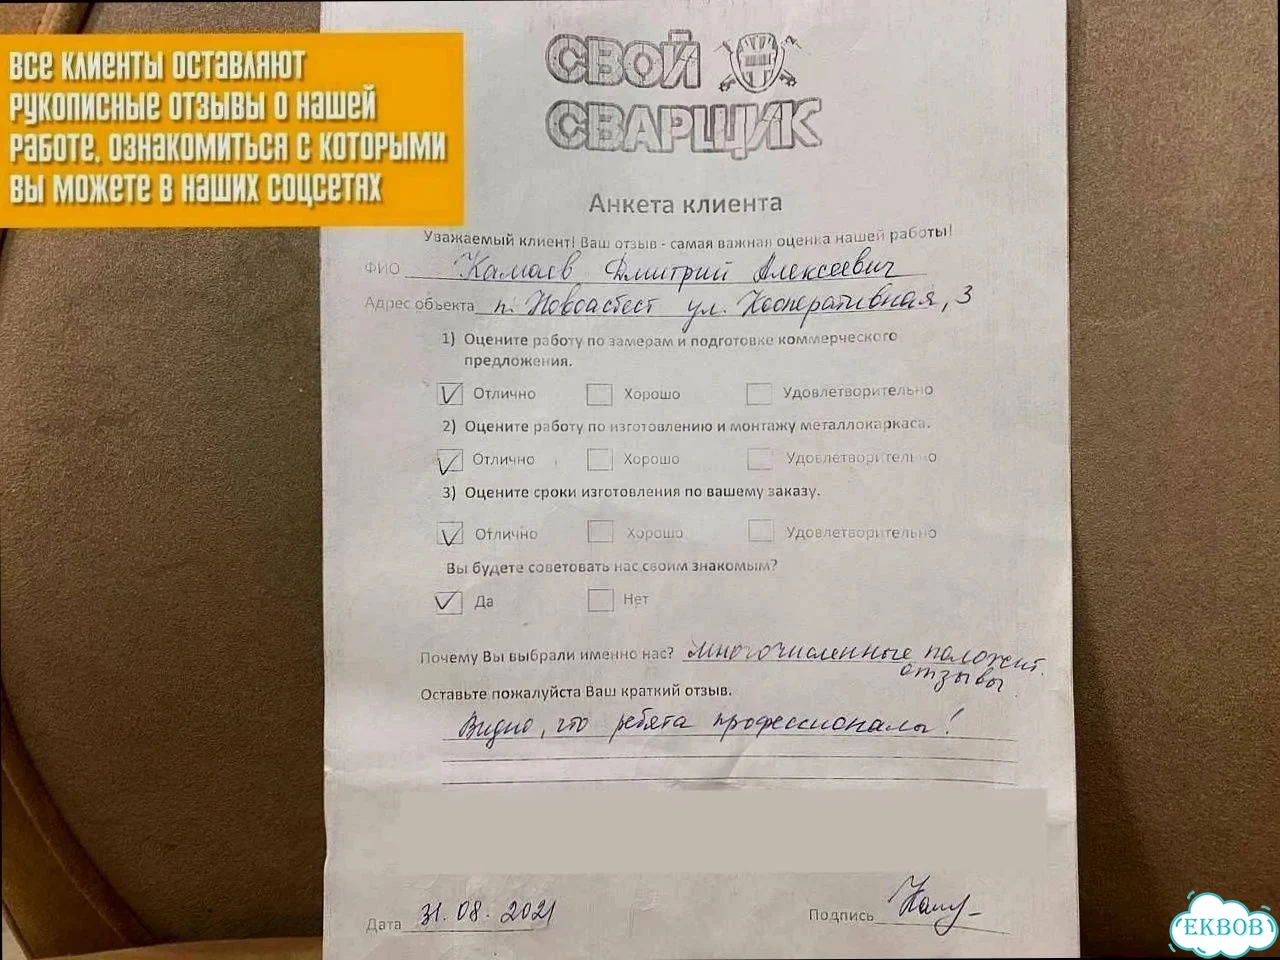 ВСЕ КЛИЕНТЫ ОСТАВЛЯЮТ
РУКОПИСНЫЕ ОТЗЫВЫ О НАШЕЙ
РАБОТЕ, ОЗНАКОМИТЬСЯ С КОТОРЫМИ
ВЫ МОЖЕТЕ В НАШИХ СОЦСЕТЯХ
СВОЙ
СВАРЩИК
Анкета клиента
Уважаемый клиент! Ваш отзыв - самая важная оценка нашей работы!
ФИО Камаев Дмитрий Алексеевич
Адрес объекта п. Новоасбест ул. Кооперативная, 3
1) Оцените работу по замерам и подготовке коммерческого
предложения.
Отлично Хорошо Удовлетворительно
2) Оцените работу по изготовлению и монтажу металлокаркаса.
Отлично Хорошо Удовлетворительно
3) Оцените сроки изготовления по вашему заказу.
Отлично Хорошо Удовлетворительно
Вы будете советовать нас своим знакомым?
Да Нет
Почему Вы выбрали именно нас? многочисленные положит.
отзывы.
Оставьте пожалуйста Ваш краткий отзыв.
Видно, что ребята профессионалы!
Дата 31.08.2021 Подпись
EKBOB